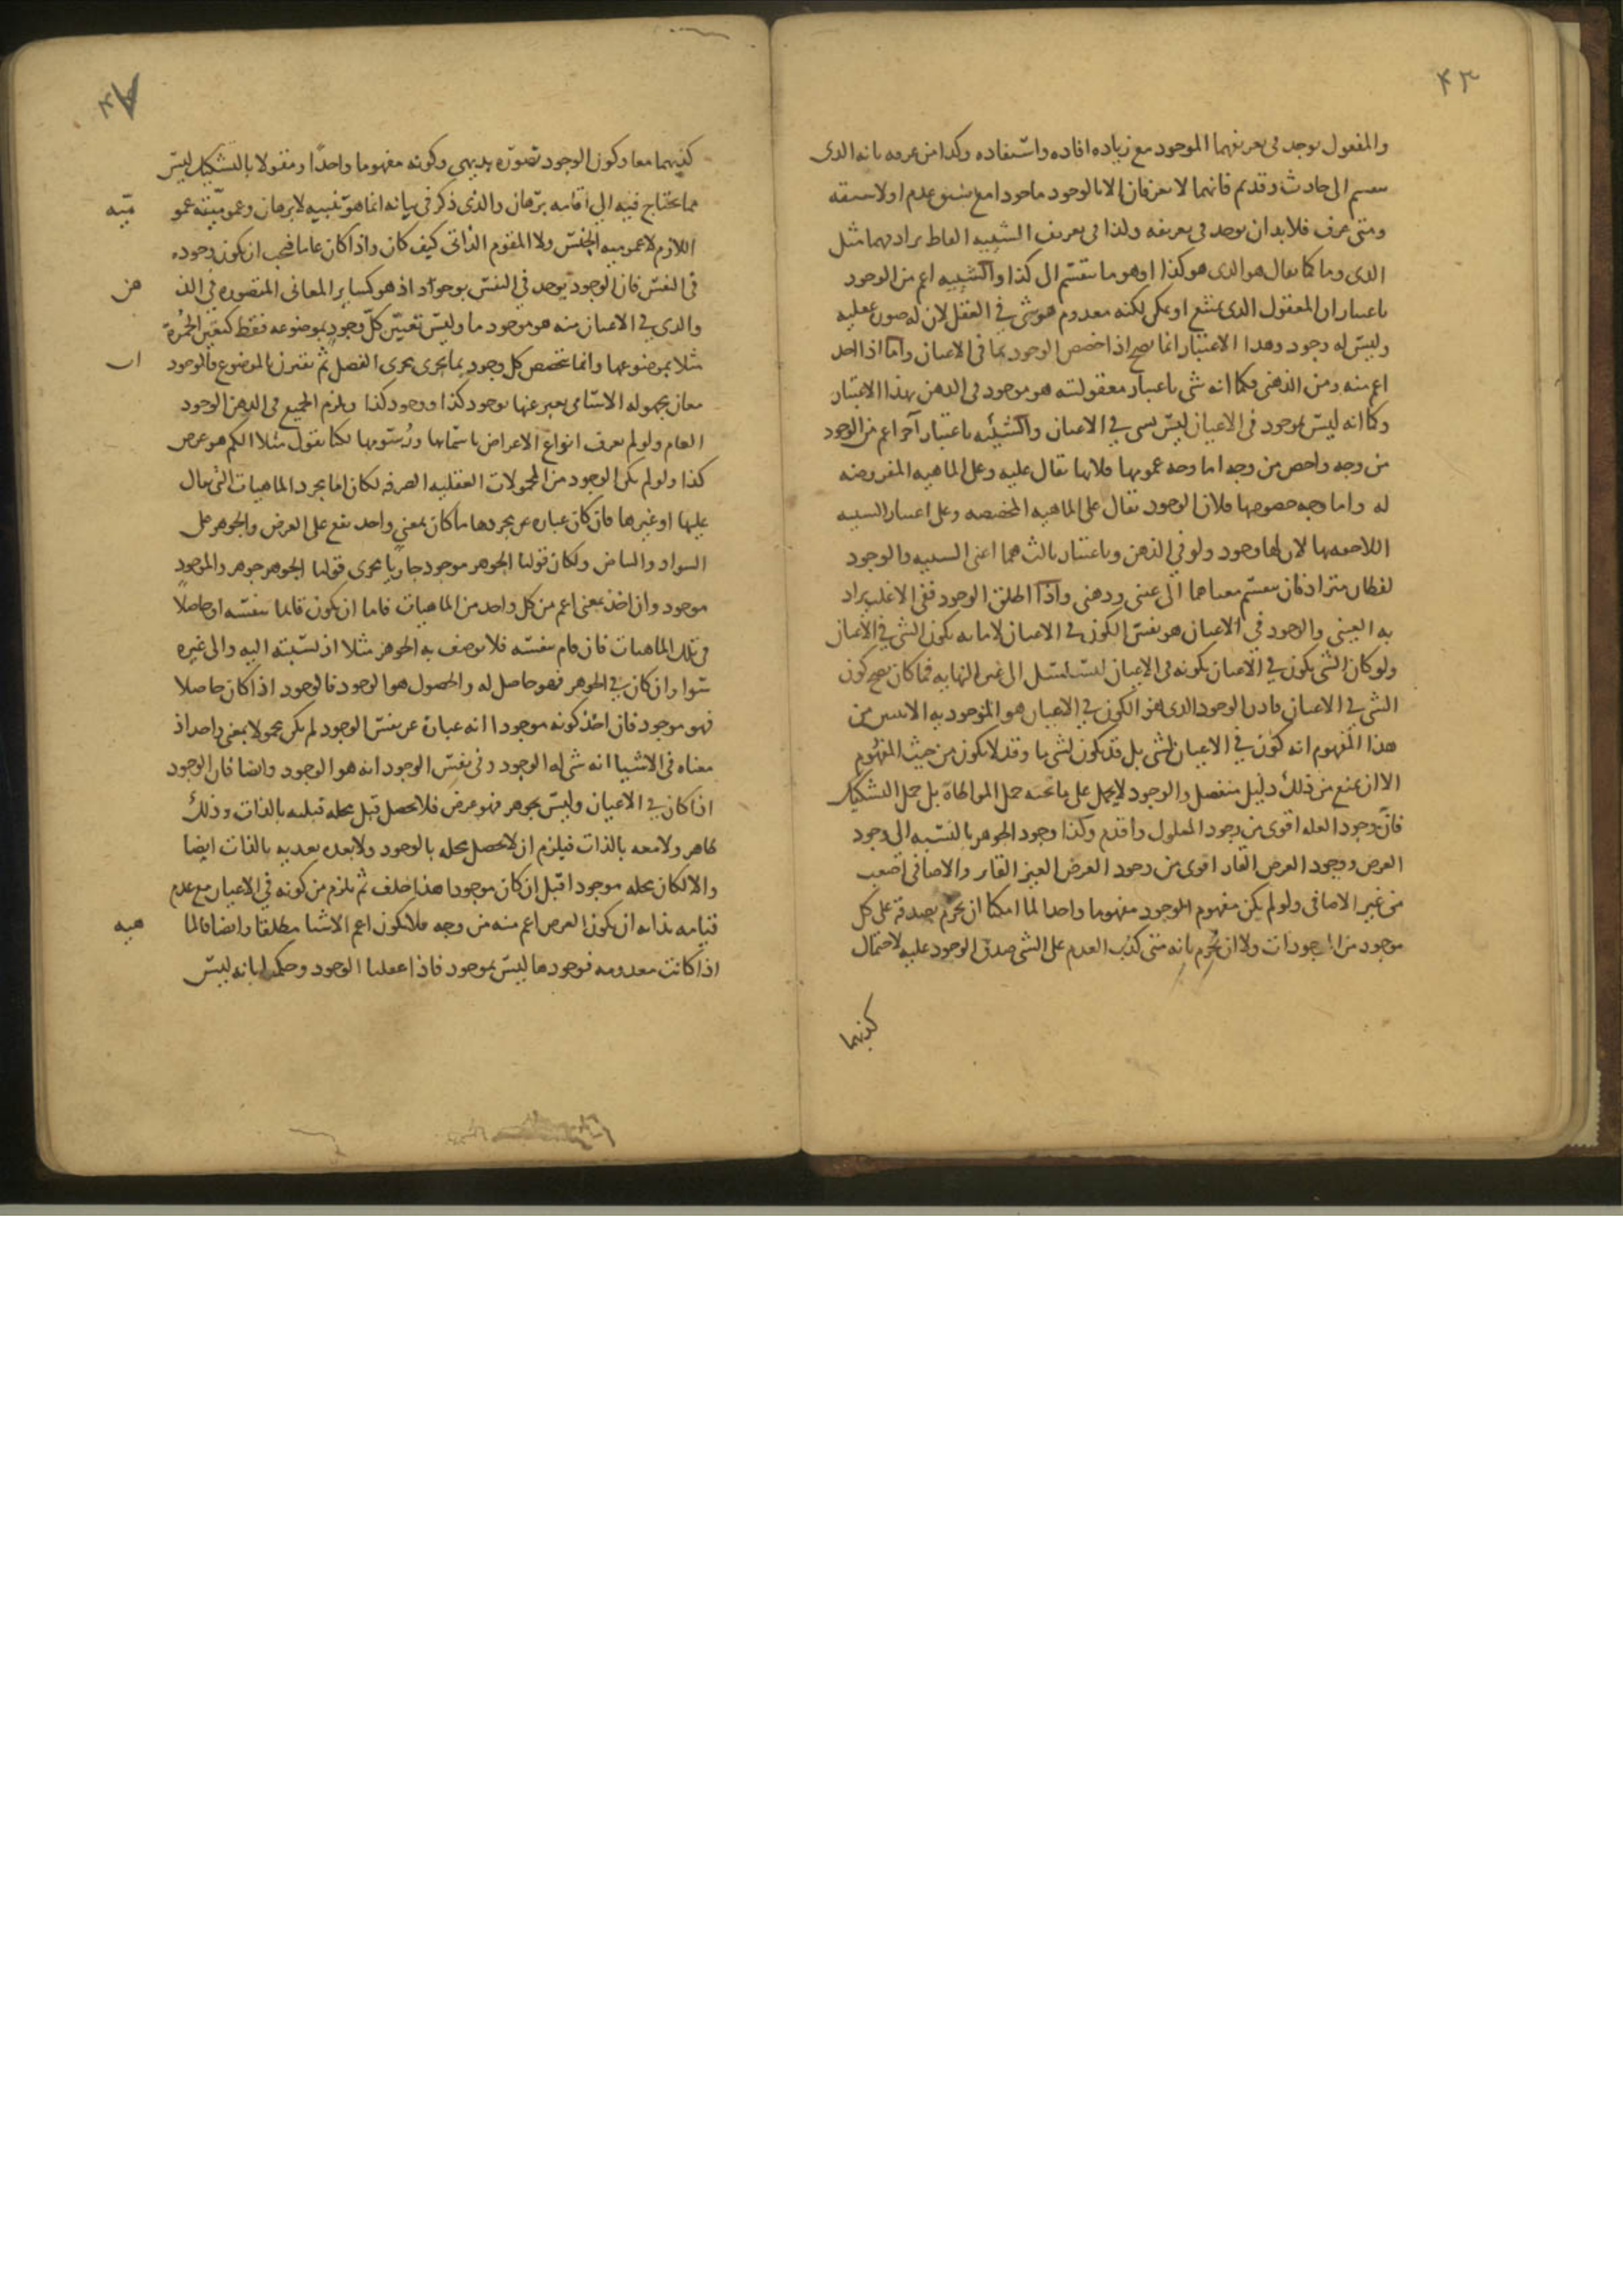 ٤٣
والمفعول يوجد في تعريفهما الموجود مع زياده افاده واستفاده وكذا من عرفه بانه الذى
ينقسم الى حادث وقديم فانهما لا يعرفان الا بالوجود ماخودا مع سبق عدم او لا سبقه
ومتى عرف فلا بد ان يوجد فى تعريفه ولذا فى تعريف الشيئيه الفاظ يرادفهما مثل
الذى وما كما يقال هو الذى هو كذا او هو ما ينقسم الى كذا والشيئيه اعم من الوجود
باعتبار ان المعقول الذى يمتنع او يمكن لكنه معدوم هو شى في العقل لان له صوره عقليه
وليس له وجود وهذا الاعتبار انما يصح اذا خصص الوجود بما فى الاعيان واما اذا اخذ
اعم منه ومن الذهنى فكما انه شى باعتبار معقوليته هو موجود فى الذهن بهذا الاعتبار
وكما انه ليس بموجود فى الاعيان ليس بشى في الاعيان والشيئيه باعتبار آخر اعم من الوجود
من وجه واخص من وجه اما وجه عمومها فلانها تقال عليه وعلى الماهيه المفروضه
له واما وجه خصوصها فلان الوجود يقال على الماهيه المخصصه وعلى اعتبار الشيئيه
اللاحقه بها لان لها وجود ولو في الذهن وباعتبار ثالث هما اعنى الشيئيه والوجود
لفظان مترادفان ينقسم معناهما الى عينى وذهنى واذا اطلق الوجود ففى الاغلب يراد
به العينى والوجود فى الاعيان هو نفس الكون فى الاعيان لا ما به يكون الشى في الاعيان
ولو كان الشى يكون في الاعيان بكونه فى الاعيان لتسلسل الى غير النهايه فما كان يصح كون
الشى في الاعيان فاذن الوجود الذى هو الكون في الاعيان هو الموجوديه من
هذا المفهوم انه كون في الاعيان لشى بل قد يكون لشى ما وقد لا يكون من حيث المفهوم
الا ان يمنع من ذلك دليل منفصل والوجود لا يحمل على ما تحته حمل المواطاة بل حمل التشكيك
فان وجود العله اقوى من وجود المعلول واقدم وكذا وجود الجوهر بالنسبه الى وجود
العرض ووجود العرض القار اقوى من وجود العرض الغير القار والاضافى اضعف
من غير الاضافى ولو لم يكن مفهوم الموجود مفهوما واحدا لما امكنا ان نجزم بصدقه على كل
موجود من الموجودات ولا ان نجزم بانه متى كذب العدم على الشى صدق الوجود عليه لاحتمال
كذبهما
كذبهما معا وكون الوجود تصوره بديهي وكونه مفهوما واحدا ومقولا بالتشكيك ليس
مما يحتاج فيه الى اقامه برهان والذى ذكر فى بيانه انما هو تنبيه لا برهان وعموميته عمو ميّه
اللازم لا عموميه الجنس ولا المقوم الذاتى كيف كان واذا كان عاما فيجب ان يكون وجوده
فى النفس فان الوجود يوجد في النفس بوجود اذ هو كساير المعانى المتصوره في الذ هن
والذى في الاعيان منه هو موجود ما وليس تعيّن كل وجود بموضوعه فقط كتعين الحمرة
مثلا بموضوعها وانما تخصص كل وجود بما يجرى مجرى الفصل ثم تقترن بالموضوع فالوجود ات
معان مجهوله الاسامى يعبر عنها بوجود كذا ووجود كذا ويلزم الجميع فى الذهن الوجود
العام ولو لم نعرف انواع الاعراض باسمائها ورسومها لكنا نقول مثلا الكم هو عرض
كذا ولو لم يكن الوجود من المحمولات العقليه الصرفه لكان اما مجرد الماهيات التى يقال
عليها او غيرها فان كان عباره عن مجردها ما كان بمعنى واحد يقع على العرض والجوهر على
السواد والبياض ولكان قولنا الجوهر موجود جاريا مجرى قولنا الجوهر جوهر والموجود
موجود وان اخذ بمعنى اعم من كل واحد من الماهيات فاما ان يكون قائما بنفسه او حاصلا
فى تلك الماهيات فان قام بنفسه فلا يوصف به الجوهر مثلا اذ نسبته اليه والى غيره
سوا وان كان في الجوهر فهو حاصل له والحصول هو الوجود فالوجود اذا كان حاصلا
فهو موجود فان اخذ كونه موجودا انه عبارة عن نفس الوجود لم يكن محمولا بمعنى واحد اذ
معناه فى الاشيا انه شى له الوجود وفى نفس الوجود انه هو الوجود وايضا فان الوجود
اذا كان فى الاعيان وليس بجوهر فهو عرض فلا يحصل قبل محله قبليه بالذات وذلك
ظاهر ولا معه بالذات فيلزم ان لا يحصل محله بالوجود ولا بعده بعديه بالذات ايضا
والا لكان محله موجودا قبل ان كان موجودا هذا خلف ثم يلزم من كونه في الاعيان مع عدم
قيامه بذاته ان يكون العرض اعم منه من وجه فلا يكون اعم الاشيا مطلقا وايضا فالما هيه
اذا كانت معدومه فوجودها ليس بموجود فاذا عقلنا الوجود وحكمنا بانه ليس